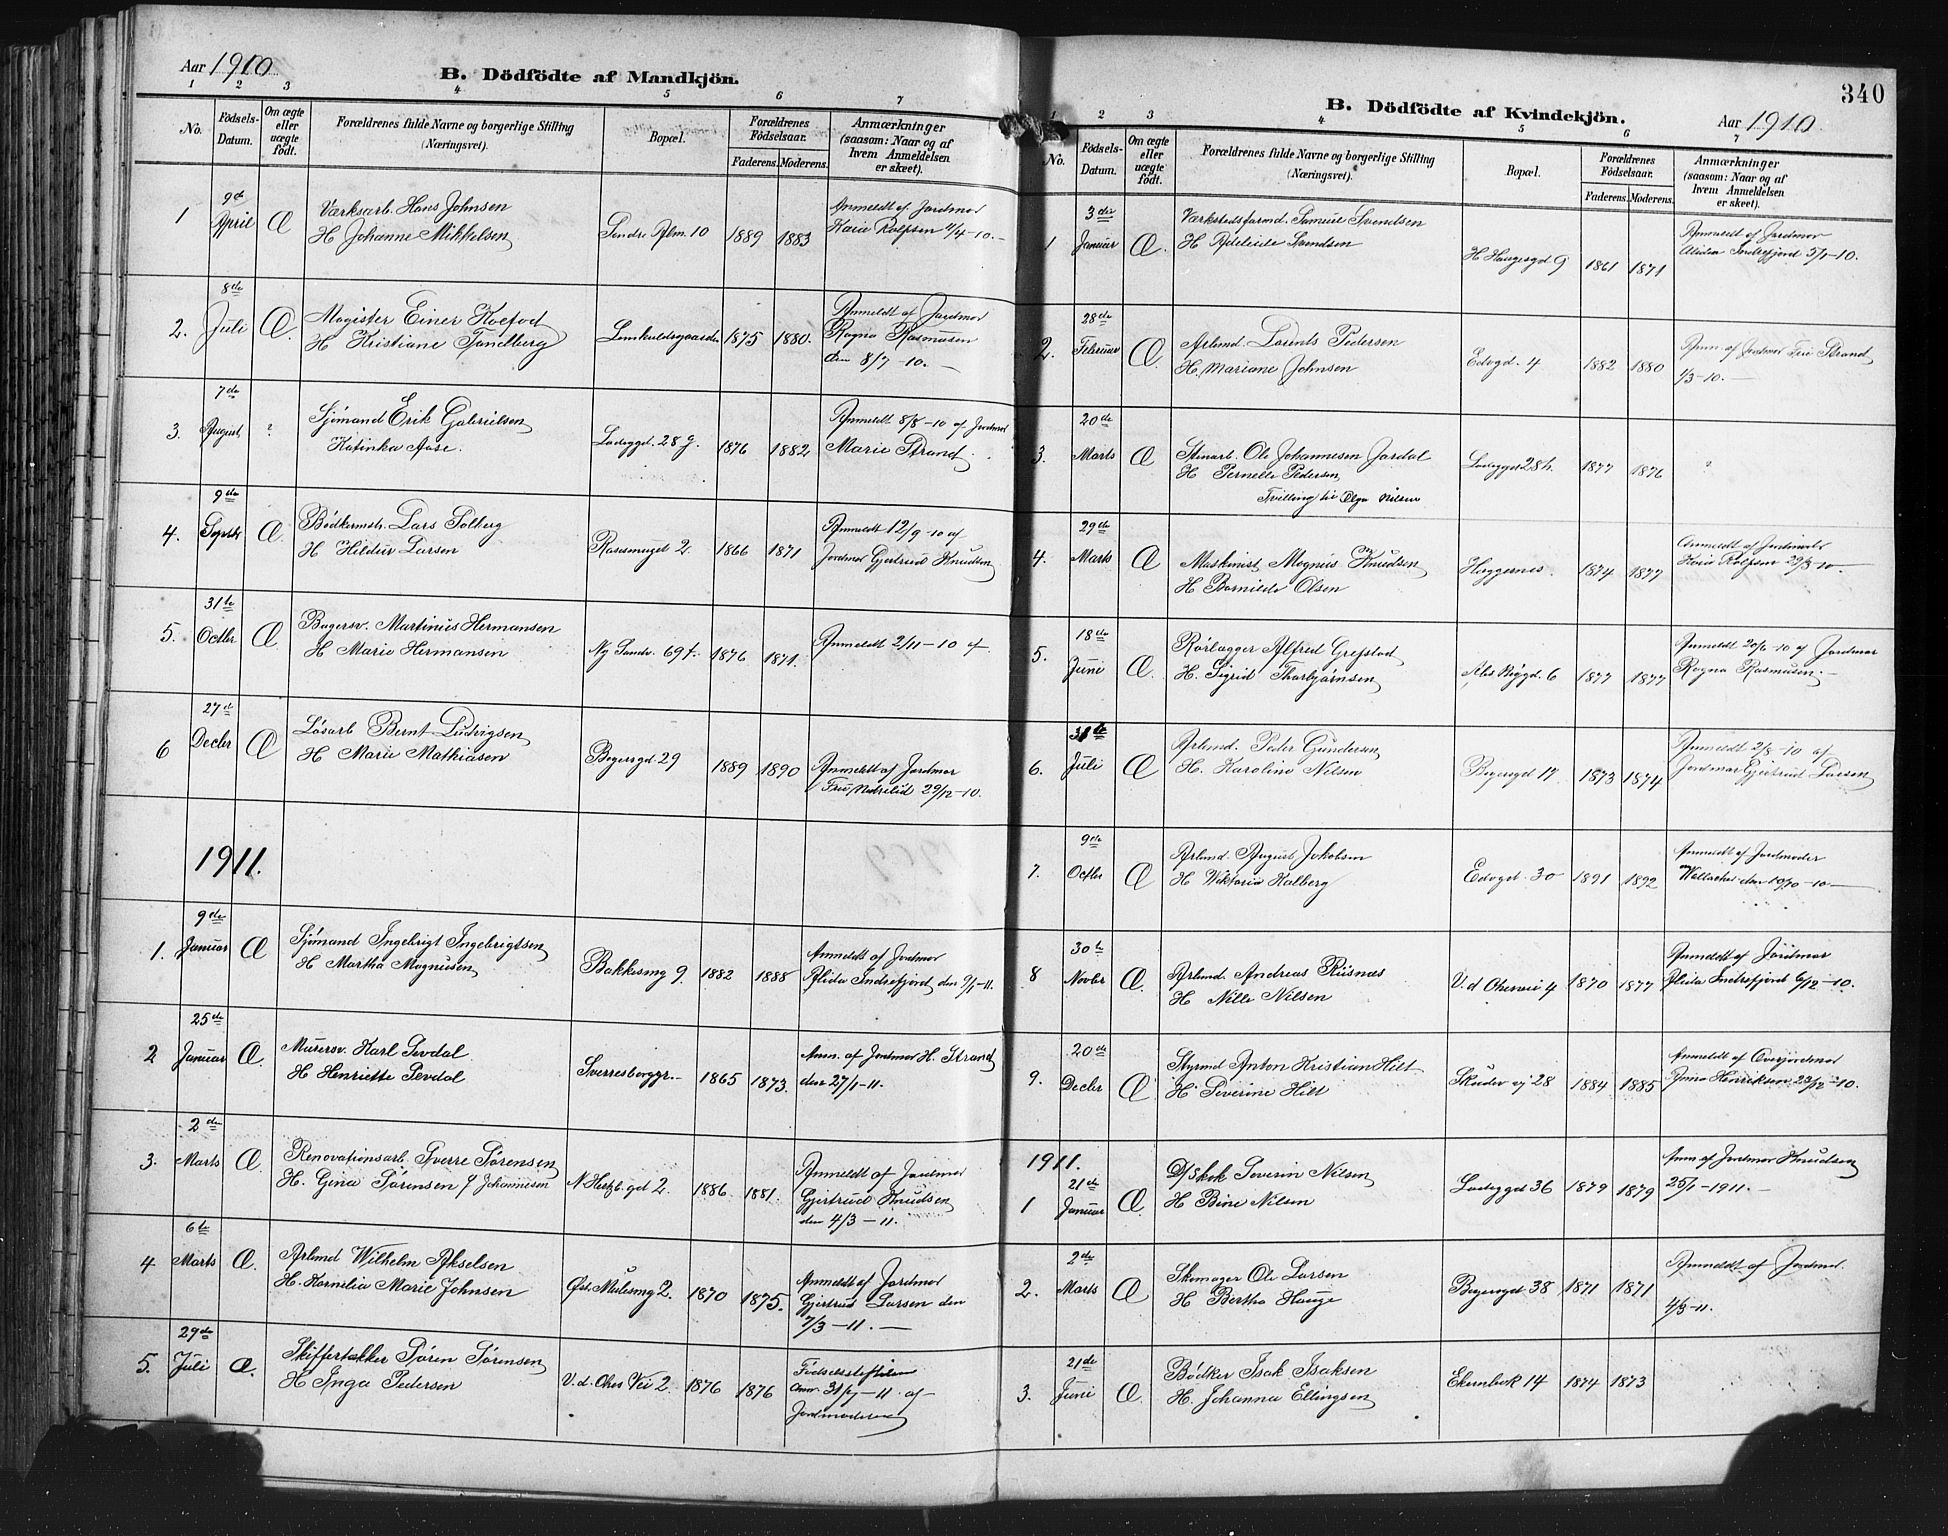 Aar 1910
B. Dödfödte af Mandkjön.
1 2 3 4 5 6 7
No.
Födsels-Datum.
Om ægte eller uægte födt.
Forældrenes fulde Navne og borgerlige Stilling (Næringsvei).
Bopæl.
Forældrenes Födselsaar.
Faderens. Moderens.
Anmærkninger (saasom: Naar og af hvem Anmeldelsen er skeet).
1 9de April Æ
Værksarb. Hans Johnsen
H Johanne Mikkelsen
Søndre Alm. 10 1889 1883
Anmeldt af Jordmor
Karie Rolfsen 11/4-10.
2. 8de Juli Æ
Magister Einer Koefod
H Kristiane Tandberg
1875 1880.
Anmeldt af Jordmor
Ragna Rasmusen
den 8/7-10.
3. 7de August ?
Sjømand Erik Gabrielsen
Katinka Aase.
Ladeggd. 28 g. 1876 1882
Anmeldt 8/8-10 af Jordmor
Marie Strand
4. 9de Septbr Æ
Bødkermstr. Lars Solberg
H Hildur Larsen
Rosesmuget 2. 1866 1871
Anmeldt 12/9-10 af
Jordmor Gjertrud Knudsen
5. 31te Octbr Æ
Bagersv. Martinus Hermansen
H Marie Hermansen
Ny Sandv. 69 f. 1876 1871.
Anmeldt 2/11-10 af
6 27de Decbr Æ
Løsarb Bernt Ludvigsen
H Marie Mathiasen
Bøgersgd 29 1889 1890
Anmeldt af Jordmor
29/12-10.
1911.
1. 9de Januar Æ
Sjømand Ingebrigt Ingebrigtsen
H Martha Magnusen
Bakkesmg 9. 1882 1888
Anmeldt af Jordmor
Alida Indrefjord den 9/1-11.
2 25de Januar Æ.
Murersv. Karl Sevdal
H Henriette Sevdal
Sverresborggr. 1865 1873.
Anm. af Jordmor H. Strand
den 27/1-11.
3. 2den Marts Æ
Renovationsarb. Sverre Sørensen
H. Gina Sørensen f Johannesen
N Hertzb. gd 2. 1886 1881.
Anmeldt af Jordmor
Gjertrud Knudsen
den 4/3-11.
4 6te Marts Æ.
Arbmd Wilhelm Akselsen
H. Kornelia Marie Johnsen
Øst. Mulesmg 2. 1870 1875.
Anmeldt af Jordmor
Gjertrud Larsen den
7/3-11.
5. 29de Juli Æ.
Skiffertækker Sören Sørensen
H Inga Pedersen
V. d. Ohes Vei 2. 1876 1876
Anm. 31/7-11 af
Jordmoderen
340
B. Dödfödte af Kvindekjön.
Aar 1910.
1 2 3 4 5 6 7
No.
Födsels-Datum.
Om ægte eller uægte födt.
Forældrenes fulde Navne og borgerlige Stilling (Næringsvei).
Bopæl.
Forældrenes Födselsaar.
Faderens. Moderens.
Anmærkninger (saasom: Naar og af hvem Anmeldelsen er skeet).
1 3die Januar Æ.
Værkstedsformd. Samuel Svendsen
H Adeleide Svendsen
H Haugesgd 9 1861 1871
Anmeldt af Jordmor
Alida Indrefjord 5/1-10.
2. 28de Februar Æ
Arbmd. Lorents Pedersen
H. Mariane Johnsen
Edvgd. 4 1882 1880
Anm. af Jordmor Frü Strand
1/3-10.
3. 20de Marts Æ
Stenarb. Ole Johannesen Jordal
H Pernelle Pedersen
Tvilling til Olga Nilsen
Ladeggd 28 h. 1877 1876 ?
4. 29de Marts Æ
Maskinist Magnus Knudsen
H Bornilde Olsen
Heggernes. 1874 1877
Anmeldt af Jordmoder
Karie Rolfsen 29/3-10.
5. 18de Juni Æ.
Rørlægger Alfred Grefstad
H. Sigrid Thorbjørnsen
6 1877 1877
Anmeldt 20/6-10 af Jordmor
Ragna Rasmusen.
6. 31te Juli Æ
Arbmd. Peder Gundersen
H. Karoline Nilsen
Bøgersgd 17 1873 1874
Anmeldt 2/8-10 af
Jordmor Gjertrud Larsen
7. 9de Octbr Æ
Arbmd. August Jakobsen
H Viktoria Kalberg
Edvgd. 30 1891 1892
Anmeldt af Jordmoder
den 10/10-10
8 30te Novbr Æ.
Arbmd. Andreas Risnæs
H Nille Nilsen
V. d Ohesvei 4 1870 1877
Anmeldt af Jordmor
Alida Indrefjord 6/12-10.
9. 20de Decbr Æ
Styrmd Anton Kristian Hilt
H Severine Hilt
Skudev vj 28 1884 1885
Anmeldt af Overjordmor
Anna Henriksen 23/12-10.
1911.
1 21de Januar Æ.
D/Skok Severin Nilsen
H Bine Nilsen
Ladeggd 36 1879 1879
Anm. af Jordmor Knudsen
25/1-1911.
2. 2de Marts Æ
Skomager Ole Larsen
H Bertha Hauge
Bøgersgd 38 1871 1871
Anmeldt af Jordmor
4/3-11.
3. 21de Juni Æ.
Bødker Isak Isaksen
H. Johanna Ellingsen
Ekernbak 14 1874 1873